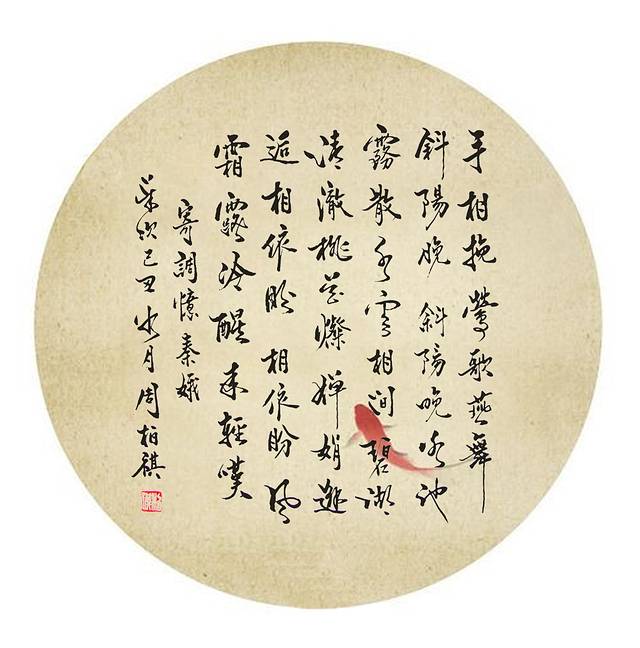 手相挽鶯歌燕舞
斜陽晚斜陽晚水池
霧散水雲相間碧湖
清澈桃花燦嬋娟邂
逅相依盼相依盼風
霜露冷醒来輕嘆
寄調憶秦娥
歲次己丑氷月周柏祺